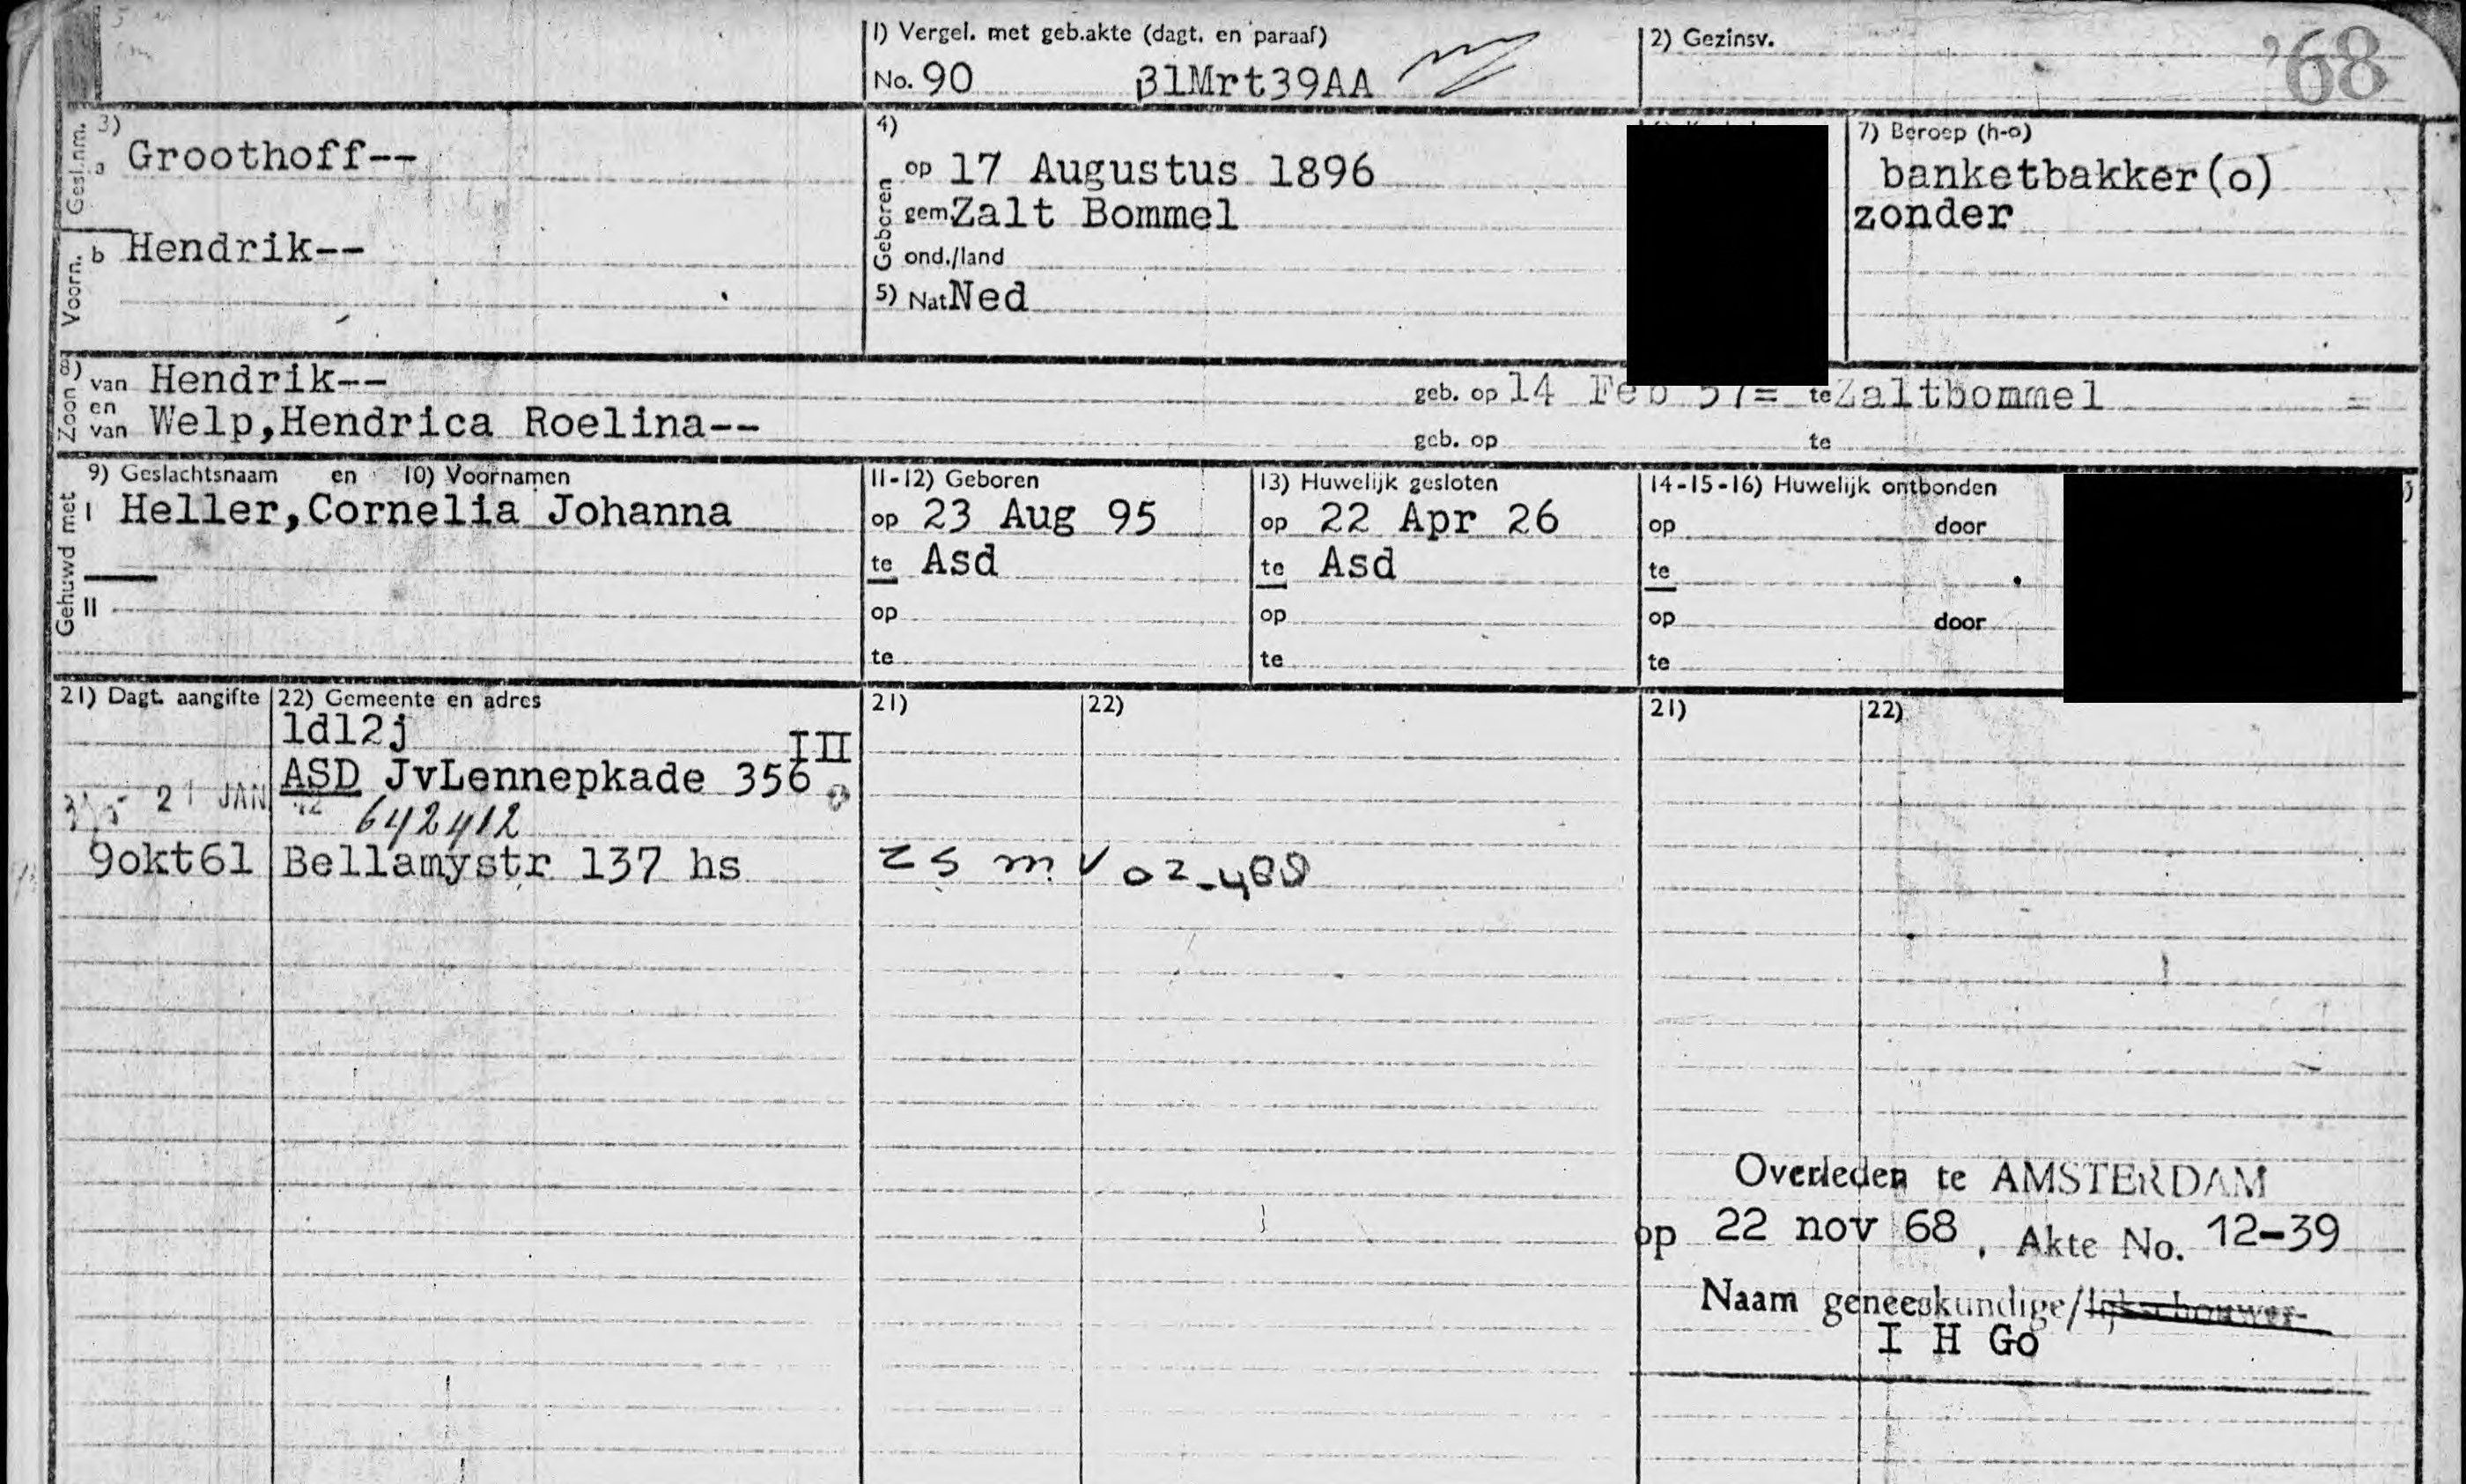 1) Vergel. met geb.akte (dagt. en paraaf)
No. 90 31Mrt39AA
2) Gezinsv.
'68
Gesl.nm.
3)
a Groothoff--
Voorn.
b Hendrik--
4)
Geboren
op 17 Augustus 1896
gem. Zalt Bommel
ond./land
5) Nat Ned
7) Beroep (h-o)
banketbakker(o)
zonder
8)
Zoon
van Hendrik-- geb. op 14 Feb 57= te Zaltbommel =
en
van Welp,Hendrica Roelina-- geb. op te
Gehuwd met
9) Geslachtsnaam en 10) Voornamen
I Heller,Cornelia Johanna
II
11-12) Geboren
op 23 Aug 95
te Asd
op
te
13) Huwelijk gesloten
op 22 Apr 26
te Asd
op
te
14-15-16) Huwelijk ontbonden
op door
te
op door
te
21) Dagt. aangifte 22) Gemeente en adres
21) 22)
21) 22)
1d12j
III
ASD JvLennepkade 356
21 JAN 42
642412
9okt61 Bellamystr 137 hs
02-488
Overleden te AMSTERDAM
op 22 nov 68, Akte No. 12-39
Naam geneeskundige/lijkschouwer
I H Go